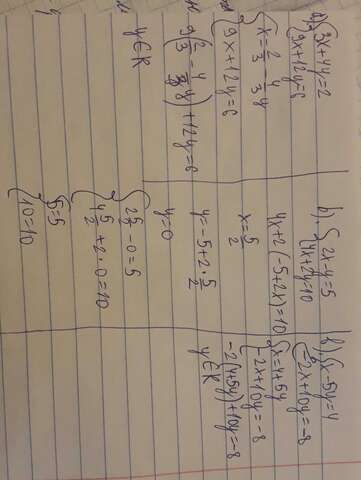 a) { 3x+4y=2
{ 9x+12y=6
{ x = 2/3 - 4/3 y
{ 9x+12y=6
9(2/3 - 4/3 y) + 12y = 6
y∈R
b) { 2x-y=5
{ 4x+2y=10
4x+2(-5+2x)=10
x = 5/2
y = -5+2·5/2
y=0
{ 2 5/2 - 0 = 5
{ 4 5/2 + 2·0 = 10
{ 5=5
{ 10=10
{ x-5y=4
{ -2x+10y=-8
{ x=4+5y
{ -2x+10y=-8
-2(4+5y)+10y=-8
y∈R